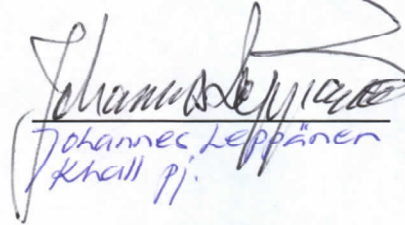 Johannes Leppänen
Johannes Leppänen
Khall pj.